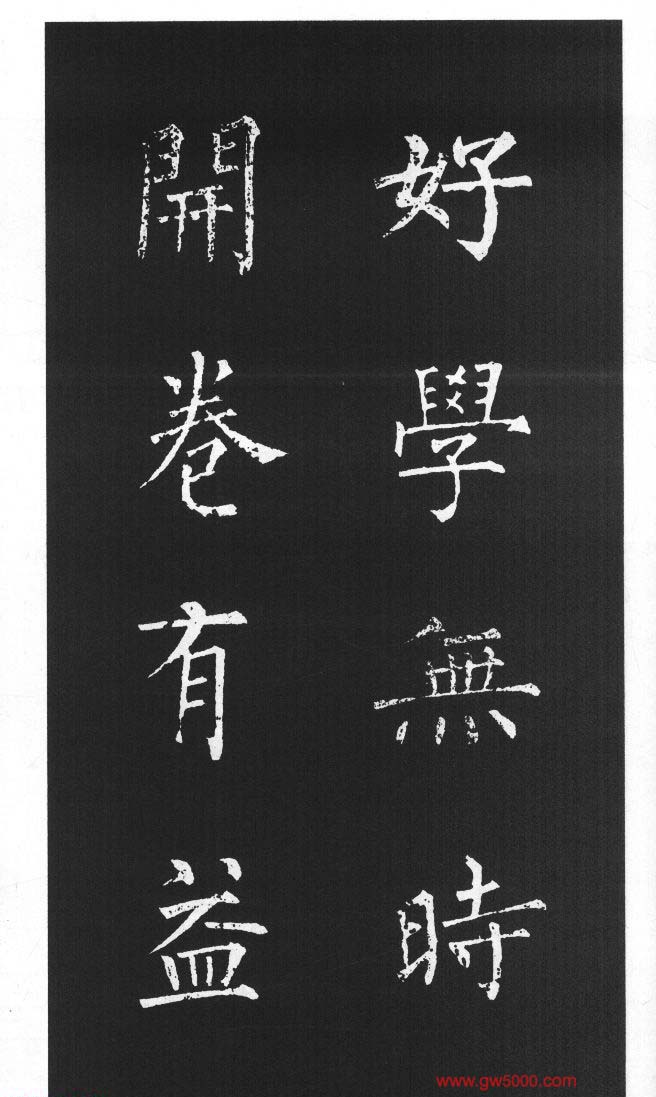 好學無時
開卷有益
www.gw5000.com